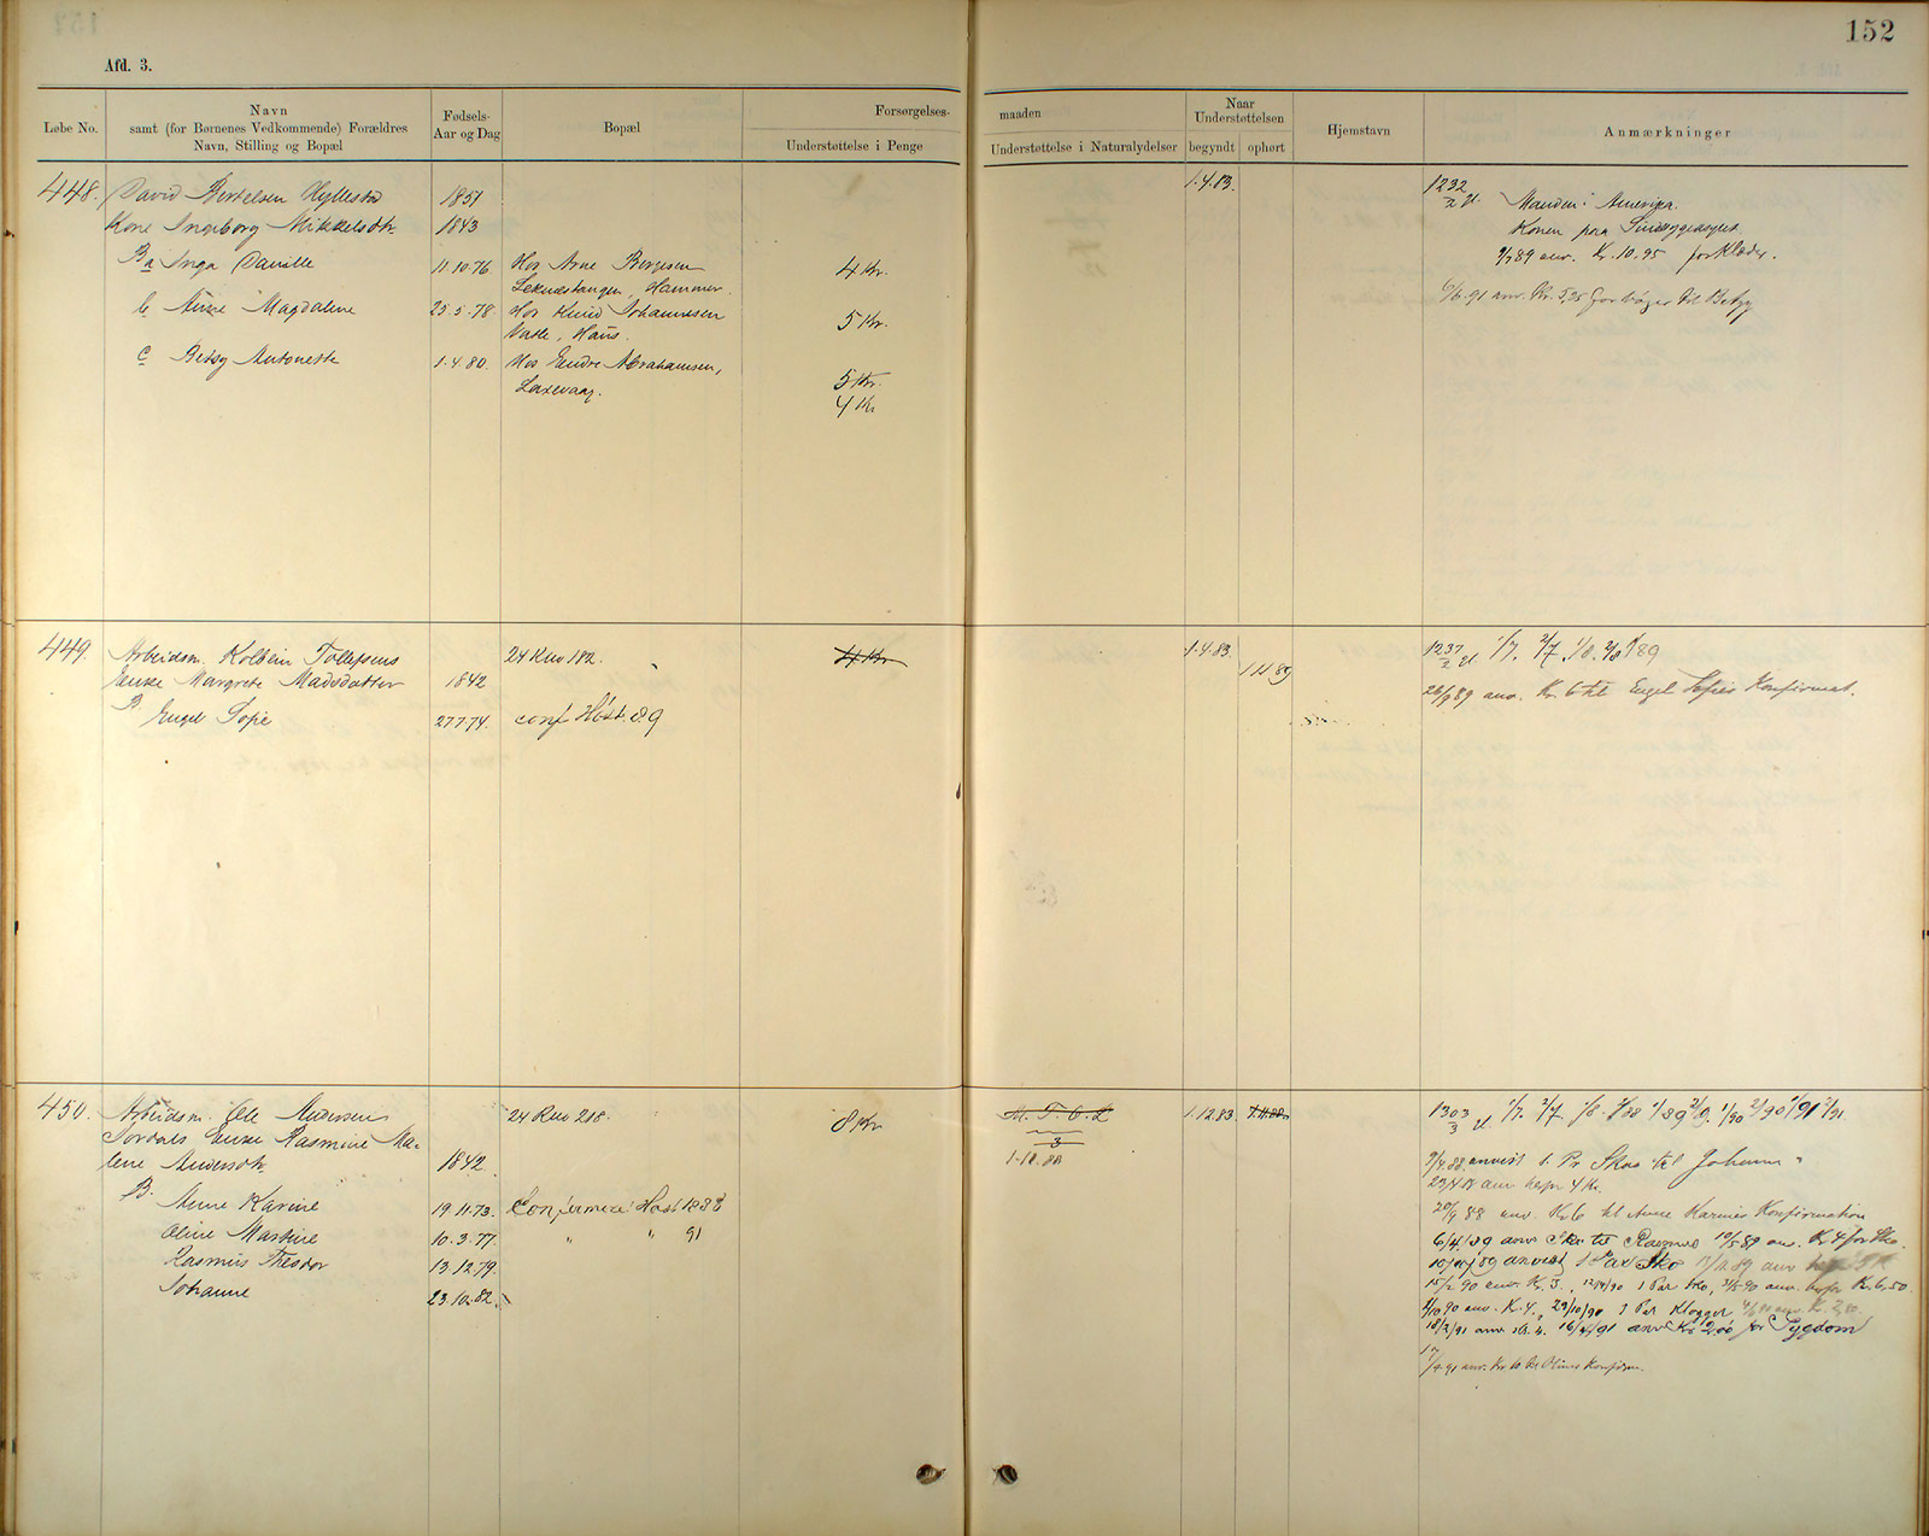 152
Afd. 3.
Løbe No.
Navn
samt (for Børnenes Vedkommende) Forældres
Navn, Stilling og Bopæl
Fødsels-
Aar og Dag
Bopæl
Forsørgelses-
Understøttelse i Penge
maaden
Understøttelse i Naturalydelser
Naar
Understøttelsen
begyndt
ophørt
Hjemstavn
Anmærkninger
448.
David Bertelsen Hyllestad
1851
1.4.83.
1232
Manden i Amerika.
Kone Ingeborg Mikkelsdtr
1843
Konen paa Sindssygeasylet
B a Inga Danille
11.10.76.
Hos Arne Børgesen
4 Kr.
Anv. Kr. 10.95 for Klæder.
Leknæstangen, Hammer.
b Anne Magdalene
25.5.78.
Hos Knud Johannesen
5 Kr.
6/6.91 anv. Kr. 5,25 for til Betzy
Vatle, Haus.
c Betsy Antonette
1.4.80.
Hos Endre Abrahamsen,
5 Kr.
Laxevaag.
4 Kr
449.
Arbeidsm. Kolbein Tollefsens
24 Rno 182.
4 Kr
1.4.83.
1237
1/7. 2/7. 1/8. 2/8 1/89
Enke Margrete Madsdatter
1842
1.11.89
26/9 89 anv. Kr. 6 til Engel Sofies Konfirmat.
B. Engel Sofie
27.7.74.
conf Høst. 89
450.
Arbeidsm. Ole Andersen
24 Rno 218.
8 Kr
M. T. O. L
3
1-11.88
1.12.83.
1.11.88.
1303
3
1/7. 2/7. 1/8. 2/88 1/89 2/9. 1/90 2/90 1/91 2/91.
Tordals Enke Rasmine Ma-
lene Andersdtr
1842.
9/4.88. anvist 1 Pr Skoe til Johanne
B. Anne Karine
19.11.73.
Confirmeres Høst 1888
20/9 88 anv. Kr 6 til Anne Karines Konfirmation
Oline Martine
10.3.77.
" " 91
6/4/89 anv Sko til Rasmus 10/5 89 anv. Kr 4 for Sko.
Rasmus Theodor
13.12.79.
anvist 1 Par Sko
Johanne
23.10.82.
15/2 90 anv. Kr. 3., 12/4/90 1 Par Sko, anv. Kr. 6,50.
2/10 90 anv. Kr. 4., 29/10/90 1 Par Klogger
18/2/91 anv. Kr. 4. 16/4/91 anv Kr 2,00 for Sygdom
anv. Kr 6 til Olines Konfirm.